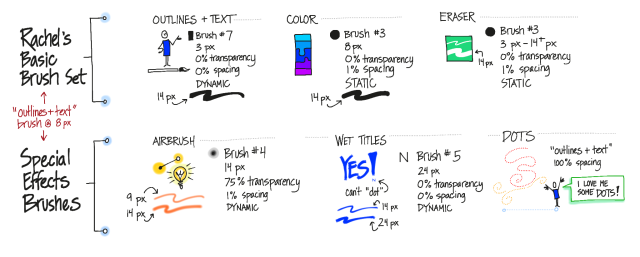 Rachel's
Basic
Brush Set
"outlines + text"
brush @ 8 px
Special
Effects
Brushes
OUTLINES + TEXT
Brush #7
3 px
0% transparency
0% spacing
DYNAMIC
14 px
COLOR
Brush #3
8 px
0% transparency
1% spacing
STATIC
14 px
ERASER
Brush #3
3 px - 14+ px
0% transparency
1% spacing
STATIC
14 px
AIRBRUSH
Brush #4
14 px
75% transparency
1% spacing
DYNAMIC
9 px
14 px
WET TITLES
YES!
can't "dot"
14 px
24 px
N
Brush #5
24 px
0% transparency
0% spacing
DYNAMIC
DOTS
"outlines + text"
100% spacing
I LOVE ME
SOME DOTS!